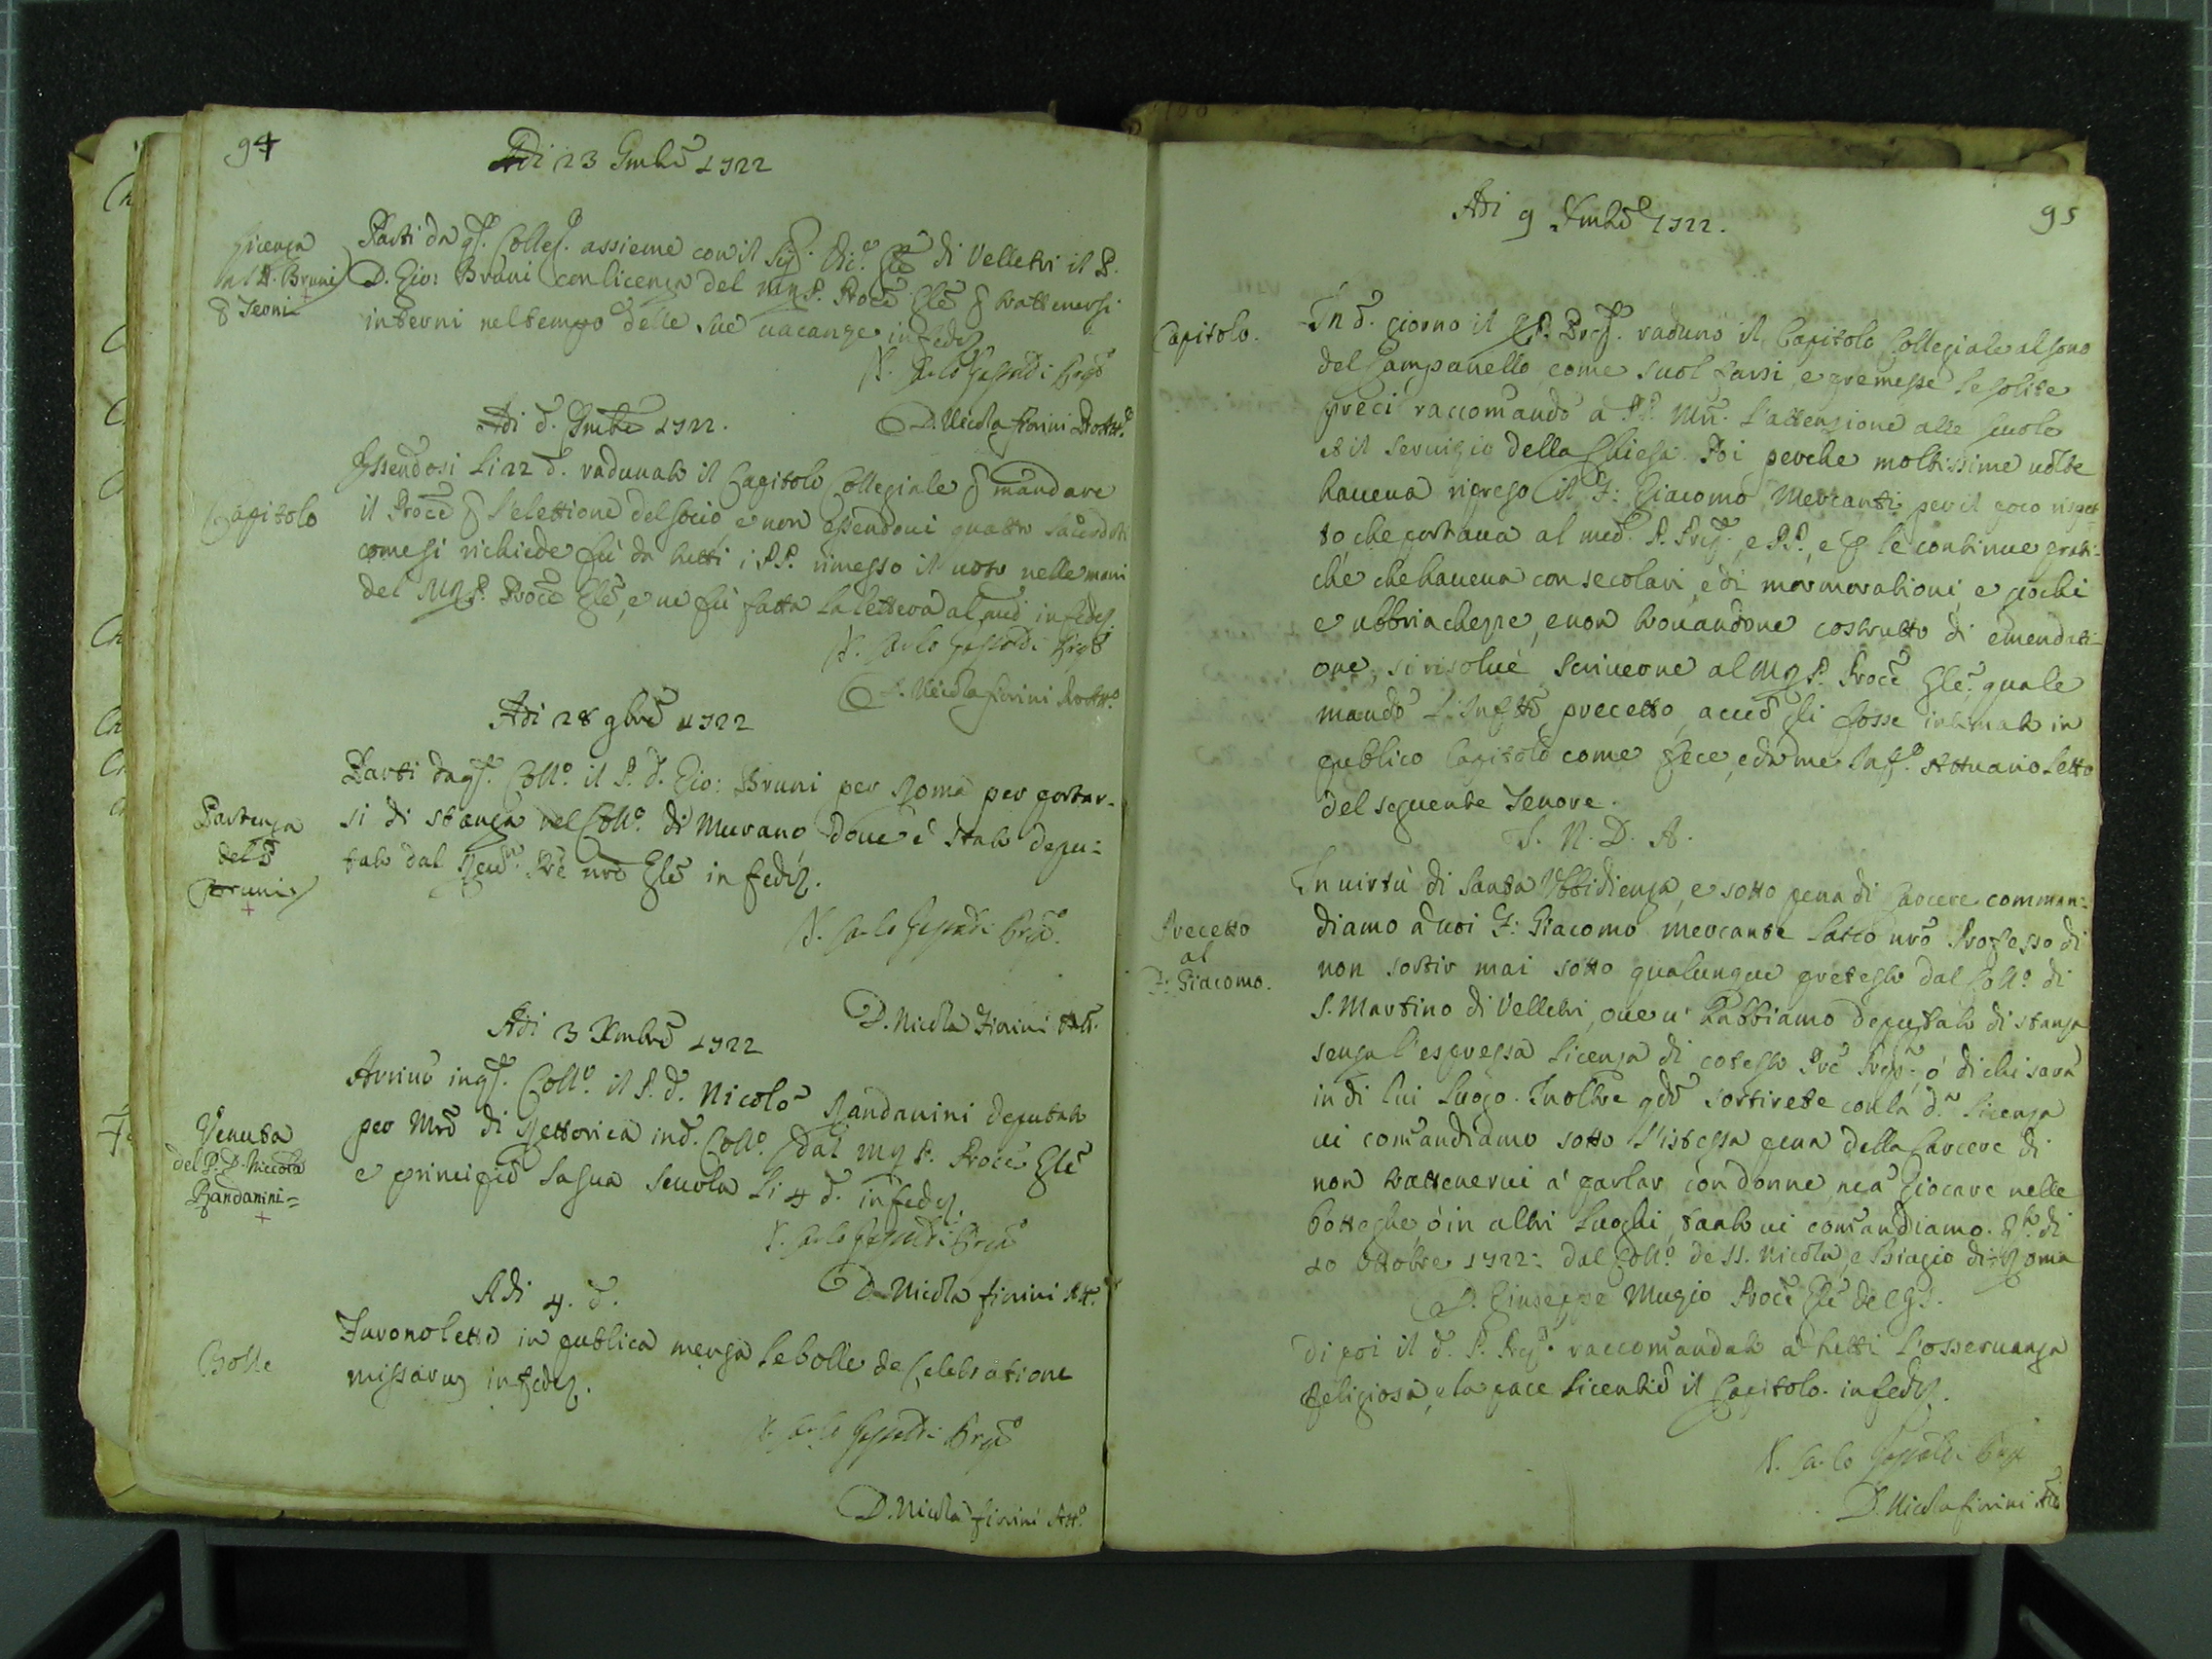 94
Adi 23 9mbrē 1722
Licenza
al P. Bruni
Parti da qs. Colleg. assieme con il Sig. Vic.o Glē di Velletri il P.
D. Gio: Bruni con licenza del P. Procē Glē trattenersi
in Terni nel tempo delle sue uacanze in fede
P. Carlo Prep.o
D. Nicola fiorini Att.o
Adi d. 9mbrē 1722.
Capitolo
Essendosi li 22 d. radunato il Capitolo Collegiale mandare
il Procē l'elettione del socio, e non essendoui quattro sacerdoti
come si richiede fù da tutti i PP. rimesso il uoto nelle mani
del P. Procē Glē, e ne fù fatta la lettera al med. in fede
P. Carlo Prep.o
D. Nicola fiorini Att.o
Adi 28 9brē 1722
Partenza
del P.
Bruni
Parti da qs. Coll.o il P. D. Gio: Bruni per Roma per portar-
si di stanza nel Coll.o di Murano, doue è stato depu-
tato dal Prē nrō Glē in fede.
P. Carlo Prep.o
D. Nicola Fiorini Att.
Adi 3 Xmbrē 1722
Venuta
del P. D. Niccola
Randanini=
Arriuò in qs. Coll.o il P. D. Nicolò Randanini deputato
per Mrō di Rettorica in d. Coll.o dal P. Procē Glē
e principiò la sua scuola li 4 d. in fede.
P. Carlo Prep.o
D. Nicola fiorini Att.o
Adi 4. d.
Bolle
Furono lette in publica mensa le bolle de Celebratione
missarum in fede.
P. Carlo Prep.o
D. Nicola fiorini Att.o
95
Adi 9 Xmbrē 1722.
Capitolo.
In d. giorno il P. Prep. radunò il Capitolo Collegiale al sono
del Campanello come suol farsi, e premesse le solite
preci raccomandò a PP. l'attenzione alle scuole
et il seruigio della Chiesa. Poi perche moltissime uolte
haueua ripreso il F: Giacomo Mercanti per il poco rispet=
to che portaua al med. P. Prep., e PP., e le continue prati-
che che haueua con secolari, e di mormorationi, e giochi
e ubbriachezze, e non trouandone costrutto di emendati-
one, si risolué scriuerne al P. Procē Glē. quale
mandò precetto, acciò gli fosse intimato in
publico Capitolo come fece, e da me Attuario letto
del seguente Tenore.
I. N. D. A.
Precetto
al
F: Giacomo.
In uirtù di santa Vbbidienza, e sotto pena di Carcere comman=
diamo a uoi F: Giacomo mercante laico nrō Professo di
non sortir mai sotto qualunque pretesto dal Coll.o di
S. Martino di Velletri, oue u' habbiamo deputato di stanza
senza l'espressa licenza di cotesto Prē Prep.; ò di chi sarà
in di lui luogo. Inoltre qdō sortirete con la d.a licenza
ui comandiamo sotto l'istessa pena della Carcere di
non trattenerui à parlar con donne, ne à Giocare nelle
botteghe, ò in altri luoghi, tanto ui comandiamo. di
10 Ottobre 1722: dal Coll.o de SS. Nicola, e Biagio di Roma
D. Giuseppe Mugio Procē Glē
Di poi il d. P. Prep. raccomandato a tutti l'osseruanza
religiosa, e la pace licentiò il Capitolo. in fede.
P. Carlo Prep.
D. Nicola fiorini Att.o